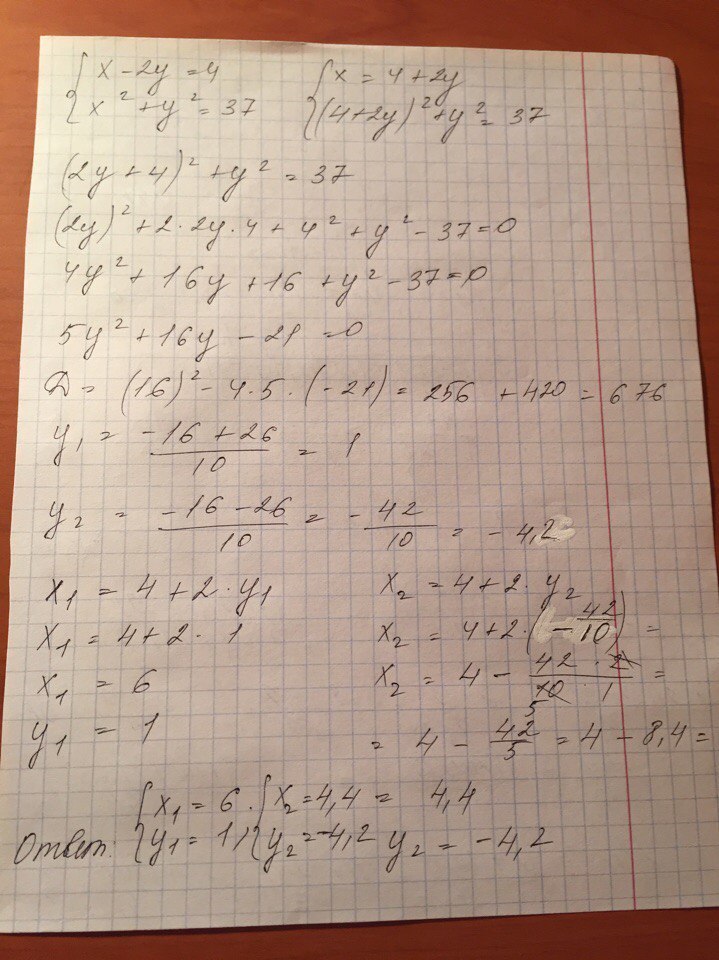 { x - 2y = 4    { x = 4 + 2y
{ x² + y² = 37    { (4+2y)² + y² = 37
(2y + 4)² + y² = 37
(2y)² + 2·2y·4 + 4² + y² - 37 = 0
4y² + 16y + 16 + y² - 37 = 0
5y² + 16y - 21 = 0
D = (16)² - 4·5·(-21) = 256 + 420 = 676
y₁ = (-16 + 26)/10 = 1
y₂ = (-16 - 26)/10 = -42/10 = -4,2
x₁ = 4 + 2·y₁    x₂ = 4 + 2·y₂
x₁ = 4 + 2·1    x₂ = 4 + 2·(-42/10) =
x₁ = 6    x₂ = 4 - (42·2)/(10·1) =
5
y₁ = 1    = 4 - 42/5 = 4 - 8,4 =
{ x₁ = 6. { x₂ = 4,4 = 4,4
Ответ: { y₁ = 1, { y₂ = -4,2 y₂ = -4,2